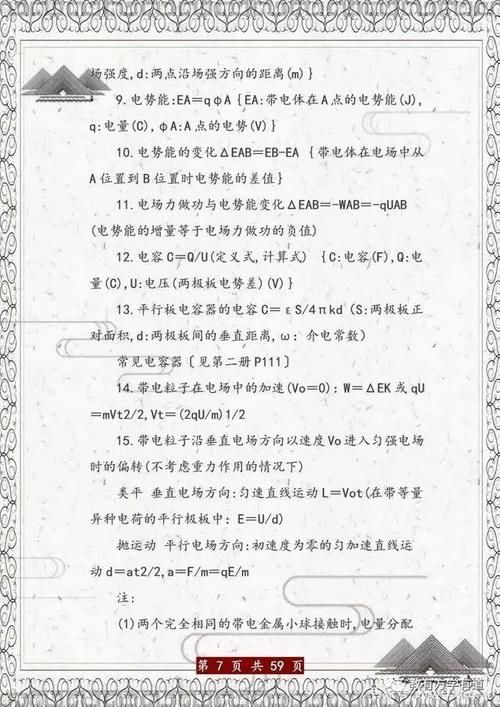 场强度,d:两点沿场强方向的距离(m)}
9.电势能:EA=qφA{EA:带电体在A点的电势能(J),
q:电量(C),φA:A点的电势(V)}
10.电势能的变化ΔEAB=EB-EA {带电体在电场中从
A位置到B位置时电势能的差值}
11.电场力做功与电势能变化ΔEAB=-WAB=-qUAB
(电势能的增量等于电场力做功的负值)
12.电容C=Q/U(定义式,计算式) {C:电容(F),Q:电
量(C),U:电压(两极板电势差)(V)}
13.平行板电容器的电容C=εS/4πkd(S:两极板正
对面积,d:两极板间的垂直距离,ω:介电常数)
常见电容器〔见第二册P111〕
14.带电粒子在电场中的加速(Vo=0):W=ΔEK或qU
=mVt2/2,Vt=(2qU/m)1/2
15.带电粒子沿垂直电场方向以速度Vo进入匀强电场
时的偏转(不考虑重力作用的情况下)
类平 垂直电场方向:匀速直线运动L=Vot(在带等量
异种电荷的平行极板中:E=U/d)
抛运动 平行电场方向:初速度为零的匀加速直线运
动d=at2/2,a=F/m=qE/m
注:
(1)两个完全相同的带电金属小球接触时,电量分配
第 7 页 共 59 页